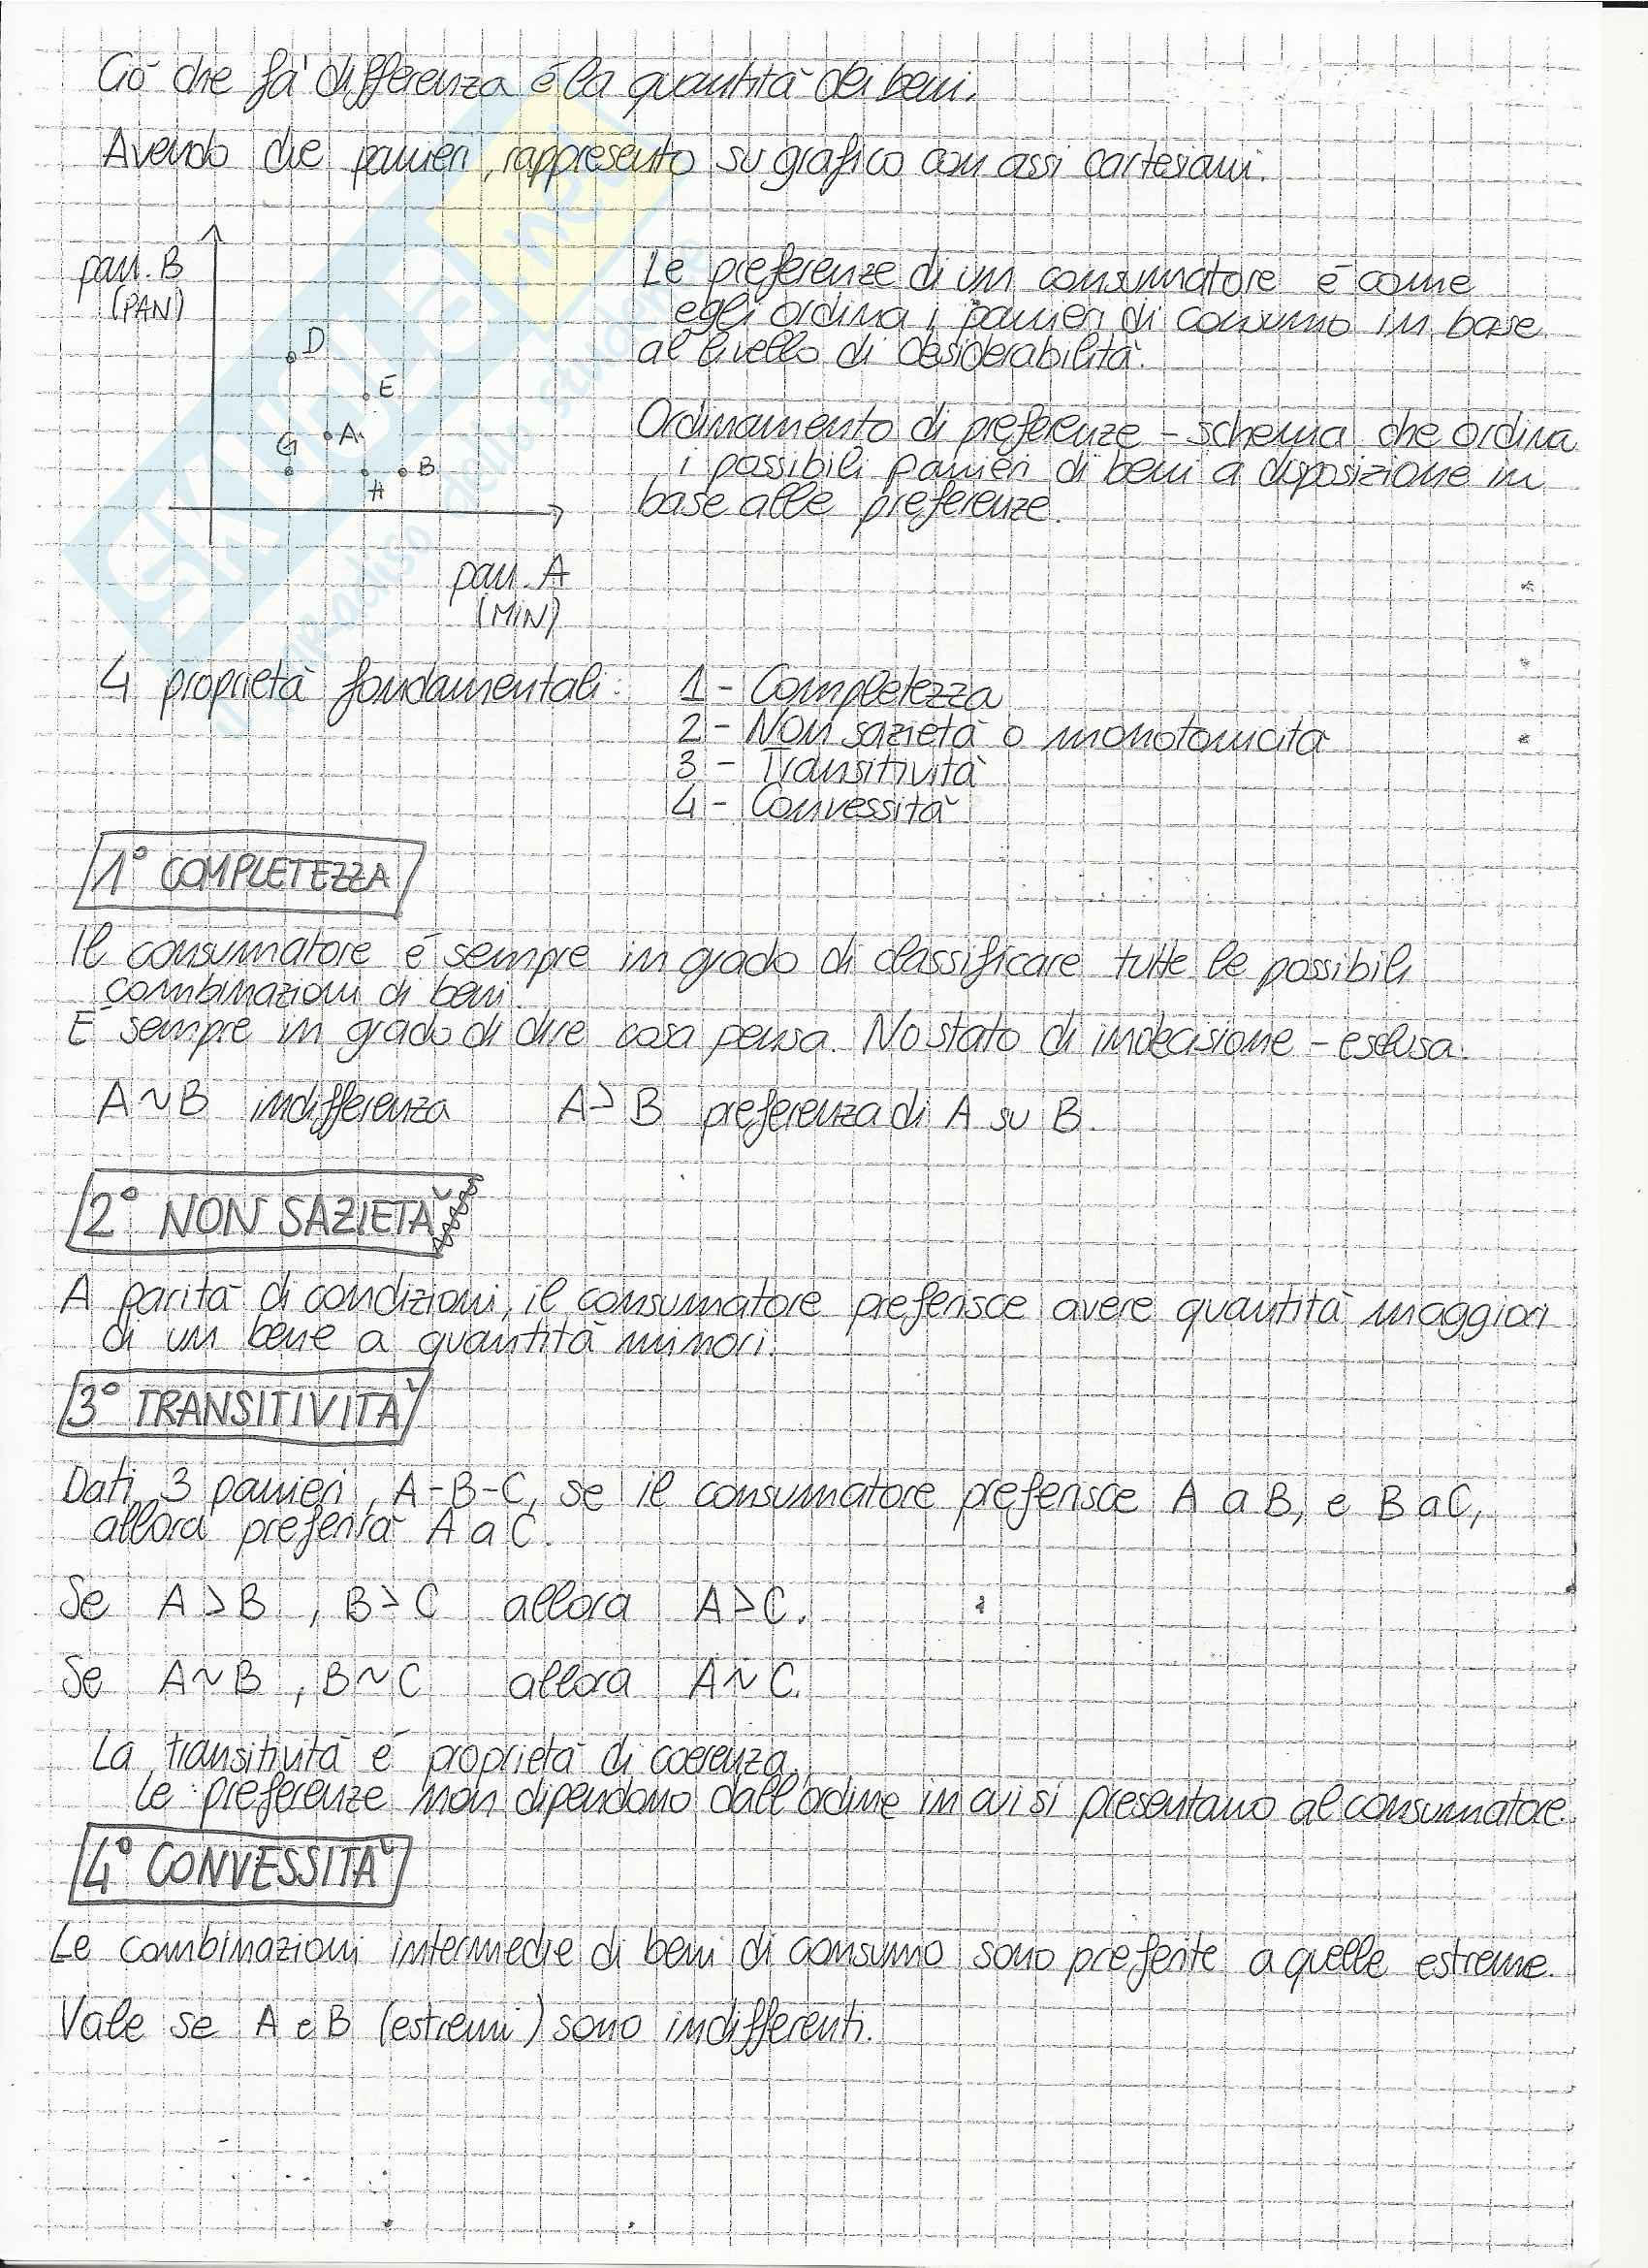 Ciò che fà differenza è la quantità dei beni.
Avendo due panieri, rappresento su grafico con assi cartesiani.
pan. B
(PAN)
D
E
A
G
B
H
pan. A
(MIN)
Le preferenze di un consumatore é come
egli ordina i panieri di consumo in base
al livello di desiderabilità.
Ordinamento di preferenze - schema che ordina
i possibili panieri di beni a disposizione in
base alle preferenze.
4 proprietà fondamentali: 1 - Completezza
2 - Non sazietà o monotonicità
3 - Transitività
4 - Convessità
1° COMPLETEZZA
Il consumatore é sempre in grado di classificare tutte le possibili
combinazioni di beni.
É sempre in grado di dire cosa pensa. No stato di indecisione - esclusa.
A ~ B indifferenza A ≻ B preferenza di A su B.
2° NON SAZIETÀ
A parità di condizioni, il consumatore preferisce avere quantità maggiori
di un bene a quantità minori.
3° TRANSITIVITÀ
Dati 3 panieri, A-B-C, se il consumatore preferisce A a B, e B a C,
allora preferirà A a C.
Se A ≻ B, B ≻ C allora A ≻ C.
Se A ~ B, B ~ C allora A ~ C.
La transitività é proprietà di coerenza.
Le preferenze non dipendono dall'ordine in cui si presentano al consumatore.
4° CONVESSITÀ
Le combinazioni intermedie di beni di consumo sono preferite a quelle estreme.
Vale se A e B (estremi) sono indifferenti.